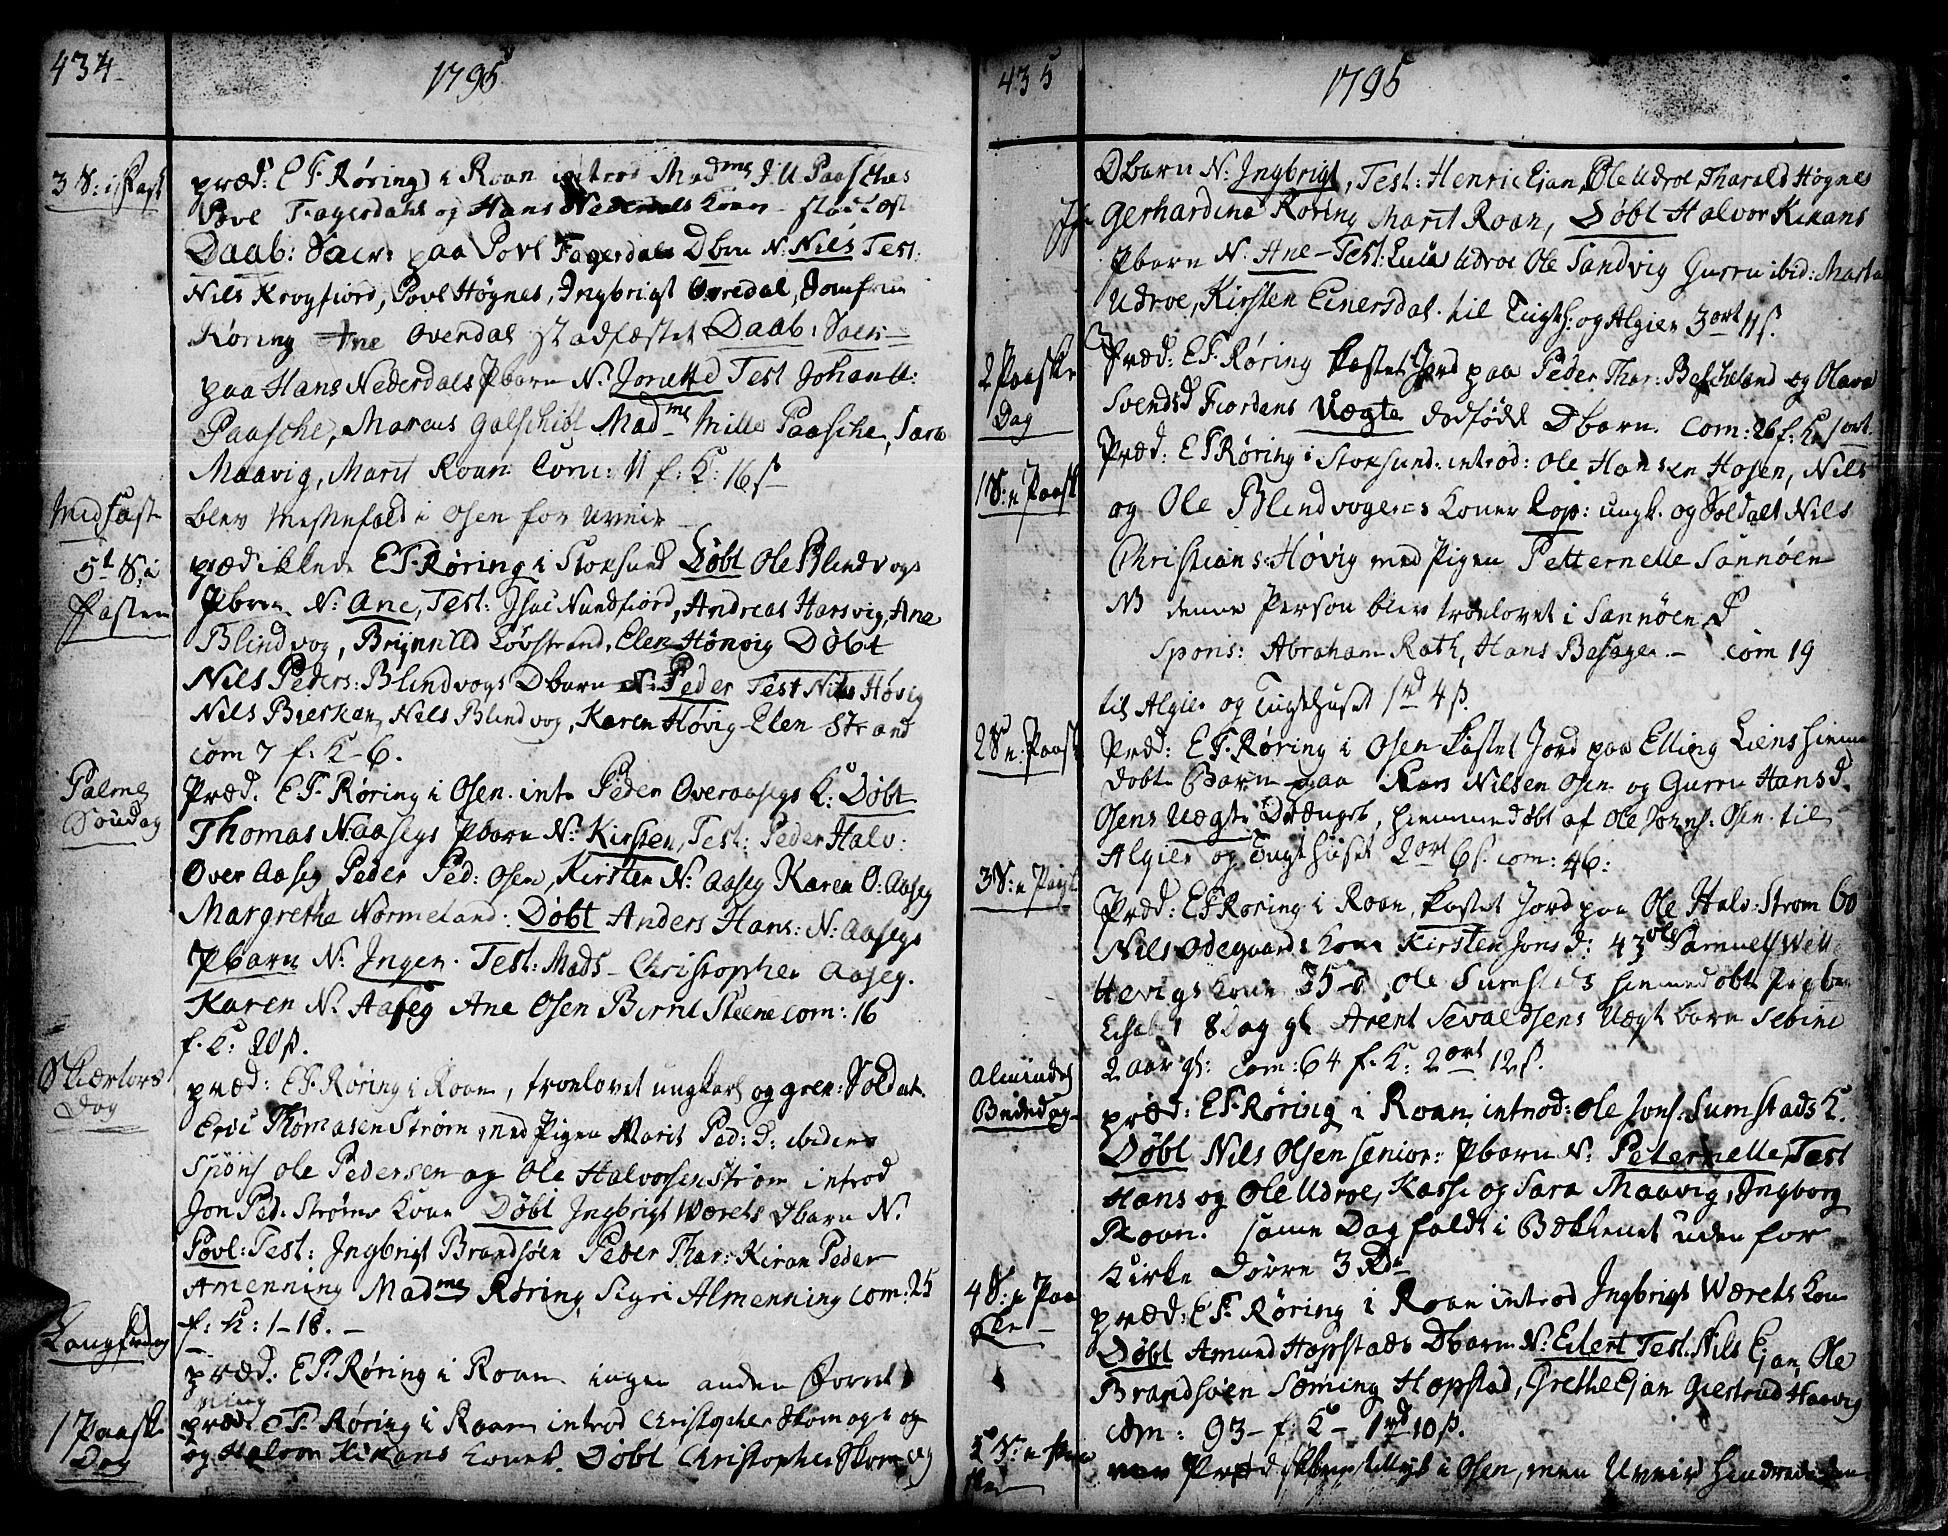 434
1795
3 S: i Fast
præd: E F. Røring i Roan introd Madme J. U. Paasches
Povl Fagerdahl og Hans Nederdals Koner
Daab: Sacr: paa Povl Fagerdals Dbrn N. Nils Test:
Nils Krogfiord, Povl Høgnes, Ingbrigt Ovredal, Jomfru
Røring Ane Overdal stadfæstet Daab: Sacr:
paa Hans Nederdals Pbarn N. Jonette Test Johan U:
Paasche, Marcus Galschiøt Madme Mille Paasche, Sara
Maavig, Marit Roan Com: 11 f: K: 16 ß
Midfast
blev Messefald i Osen for Uveir
5t S. i
Fasten
prædikede E F. Røring i Stoksund Døbt Ole Blindvogs
Pbrn N. Ane, Test: Isac Nundfiord, Andreas Harsvig, Ane
Blindvog, Brynnild Løvstrand, Elen Hønvig Døbt
Nils Peders: Blindvogs Dbarn N. Peder Test Nils Høvig
Nils Bierkan, Nils Blindvog, Karen Høvig Elen Strand
com 7 f: K - 6.
Palme
Søndag
Præd. E F. Røring i Osen int. Peder Overaasegs K: Døbt
Thomas N Aasegs Pbarn N. Kirsten, Test: Peder Halv:
Over Aaseg Peder Ped: Osen, Kirsten N: Aaseg Karen O: Aaseg
Margrethe Normeland: Døbt Anders Hans: N: Aasegs
Pbarn N. Ingen. Test: Mads - Christopher Aaseg.
Karen N. Aaseg Ane Osen Bernt Steene com: 16
f: K: 20 ß.
Skiertors
Dag
præd: E F. Røring i Roan, troelovet ungkarl og gren: Soldat
Eric Thomasen Strøm med Pigen Marit Ped: D: ibidem
Spons Ole Pedersen og Ole Halvorsen Strøm introd
Jon Ped. Strøms Kone Døbt Ingbrigt Værets Dbarn N.
Povl: Test: Ingbrigt Brandsøen Peder Thar: Kiran Peder
Amenning Madme Røring, Sigri Almenning com: 25
f: K: 1-18. -
Langfredag
præd. E F. Røring i Roan ingen anden Forret
ning
1 Paaske
Dag
præd: E F. Røring i Roan introd Christopher Skomager og
og Halvor Kirans Koner. Døbt Christopher Skomag
435
1795
Dbarn N: Ingbrigt, Test: Henric Ejan, Ole Udroe, Tharald Høgnes
Gerhardine Røring Marit Roan, Døbt Halvor Kirans
Pbarn N. Ane - Test: Lucas Udroe Ole Sandvig Gurru ibid: Marta
Udroe, Kirsten Einersdal. til Tugth: og Algier 3 ort 11 ß.
2 Paaske
Dag
Præd: E F. Røring kastet Jord paa Peder Thar: Bessheland og Olava
Svendsd Fiordans Uægte dødfødt Dbarn. Com: 26 f: K. 1 ort.
1 S: e Paask
Præd: E F Røring i Stoksund: introd: Ole Hansen Hosen, Nils
og Ole Blindvogenes Koner Kop: ungk. og Soldat Nils
Christians: Høvig med Pigen Petternelle Sannøen
NB denne Person blev troelovet i Sannøen
Spons: Abraham Rath, Hans Besager. - com 19
til Algier og Tugthuset 1 rd 4 ß.
2 S e. Paask
Præd: E F. Røring i Osen kastet Jord paa Elling Liens hiemme
døbte Barn paa Nilsen Osen og Gurru Hans d.
Osens Uægte Drænget, hiemmedøbt af Ole Johns: Osen. til
Algier og Tugthuset 2 ort 6 ß. com: 46:
3 S: e Paask
Præd: E F Røring i Roan, kastet Jord paa Ole Halv: Strøm 60
Nils Ødegaards Kone Kirsten Jons d: 43 Samuel
Hevigs Kone 35 Ole Sumstads hiemmedøbte Pigbarn
8 Dag gl Arent Sevaldsens Uægt barn Sebine
2 aar gl: Com: 64 f: K: 2 ort 12 ß.
Almindel
Bededag
præd: E F. Røring i Roan, introd: Ole Jons: Sumstads K.
Døbt Nils Olsen senior: Pbarn N. Peternelle, Test
Hans og Ole Udroe, Kasse og Sara Maavig, Ingborg
Roan. samme Dag faldt i Bækkenet uden for
Kirke Dørre 3 Rd
4 S: e Paa
ske
præd: E F. Røring i Roan introd Ingbrigt Værets Kone
Døbt Amund Hopstads Dbarn N: Edert Test. Nils Ejan, Ole
Brandsøen Søming Hopstad, Grethe Ejan Giertrud Haavig
com: 93 - f: K - 1 rd 10 ß.
5 S: e Paa
ske
i Osen, men Uveir hindrede